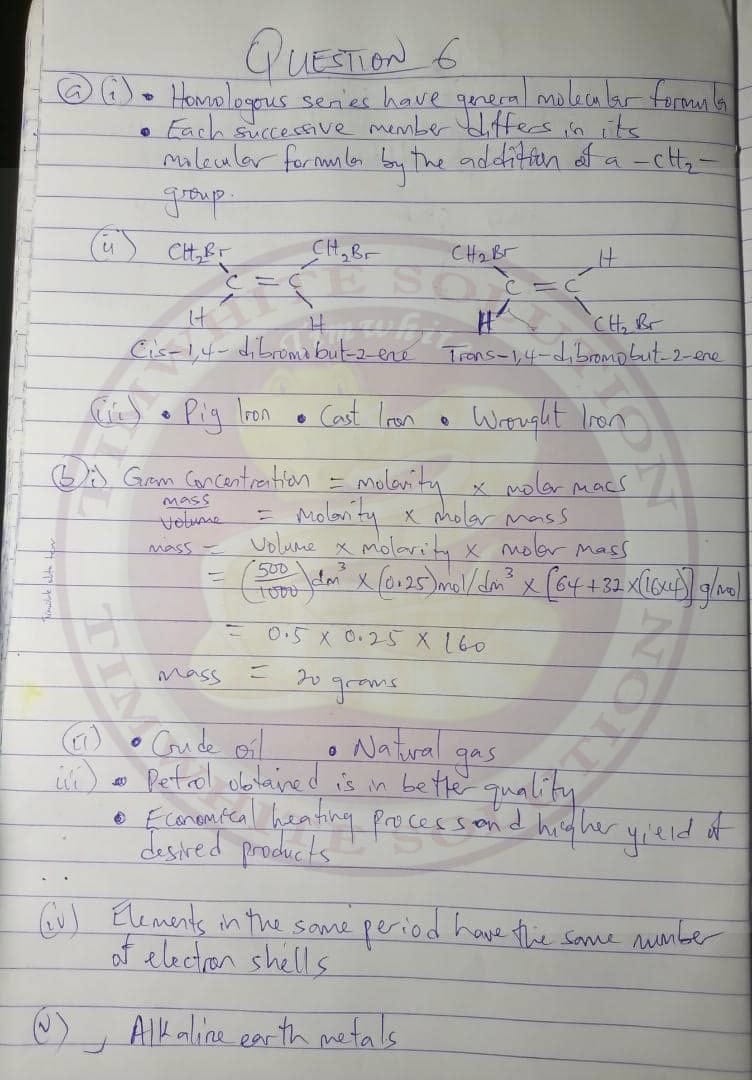 QUESTION 6
(a) (i) • Homologous series have general molecular formula
• Each successive member differs in its
molecular formula by the addition of a -CH₂-
group.
(ii) CH₂Br CH₂Br CH₂Br H
C = C C = C
H H H CH₂Br
Cis-1,4-dibromobut-2-ene Trans-1,4-dibromobut-2-ene
(iii) • Pig Iron • Cast Iron • Wrought Iron
(b) i) Gram Concentration = molarity x molar mass
mass/volume = Molarity x molar mass
mass = Volume x molarity x molar mass
= (500/1000) dm³ x (0.25) mol/dm³ x [64+32x(16x4)] g/mol
= 0.5 x 0.25 x 160
mass = 20 grams
(ii) • Crude oil • Natural gas
iii) • Petrol obtained is in better quality
• Economical heating process and higher yield of
desired products
(iv) Elements in the same period have the same number
of electron shells
(v) , Alkaline earth metals
TIMWHITE SOLUTION
TIMWHITE SOLUTION